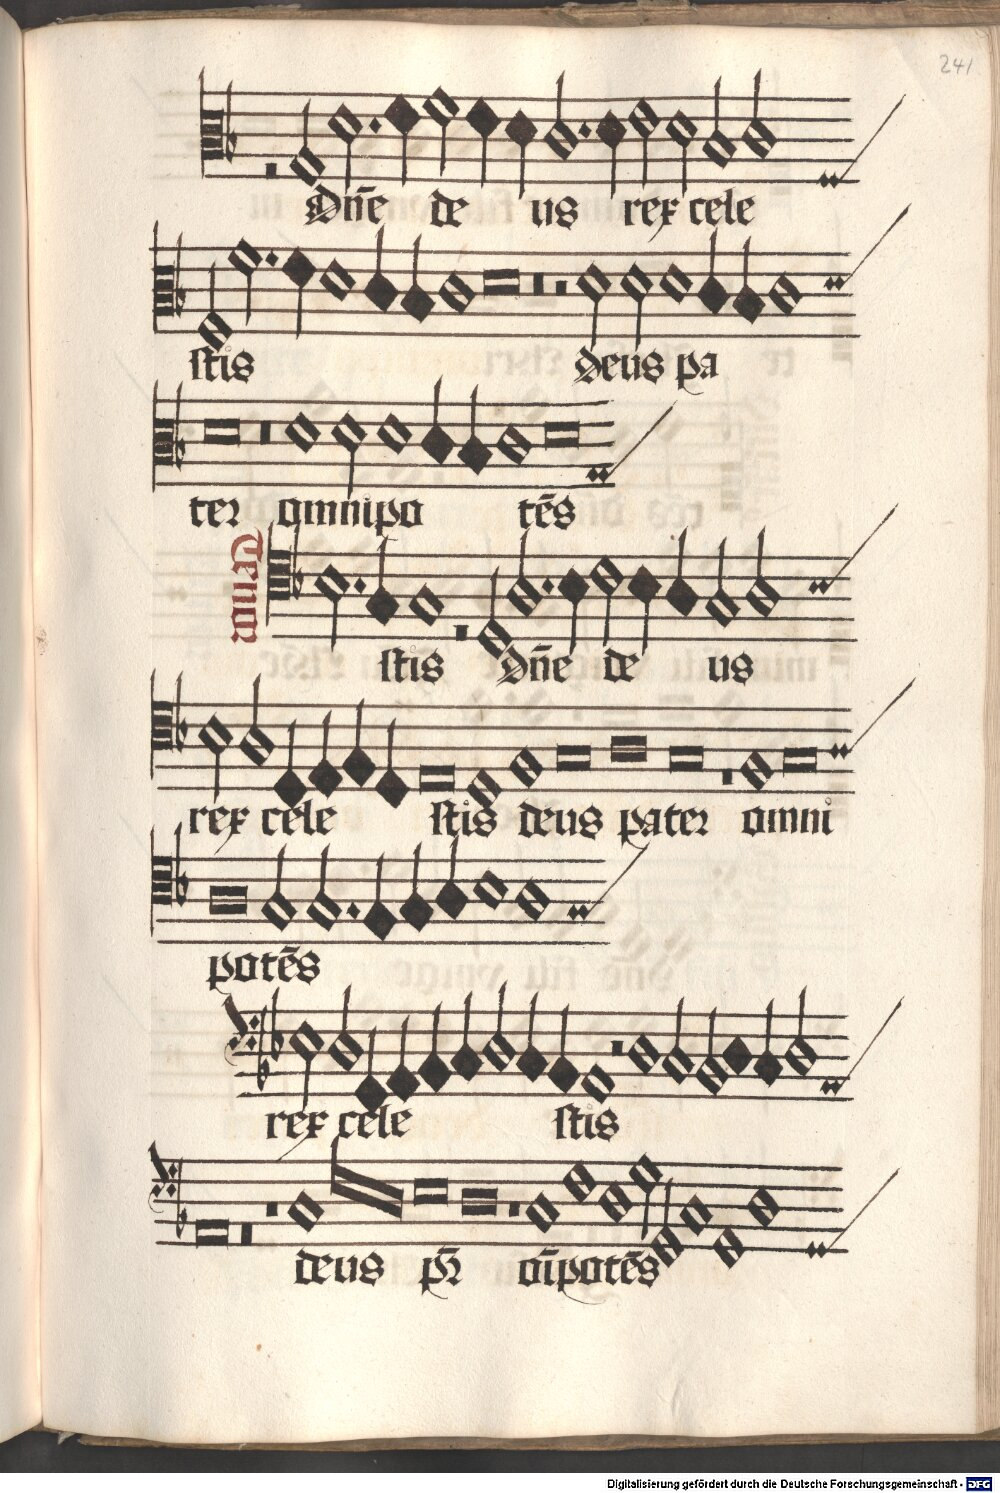 241
Dn̄e de us rex cele
stis Deus pa
ter omnipo tēs
Tenor
stis Dn̄e de us
rex cele stis deus pater omni
potēs
rex cele stis
deus pr̄ oīpotēs
Digitalisierung gefördert durch die Deutsche Forschungsgemeinschaft - DFG